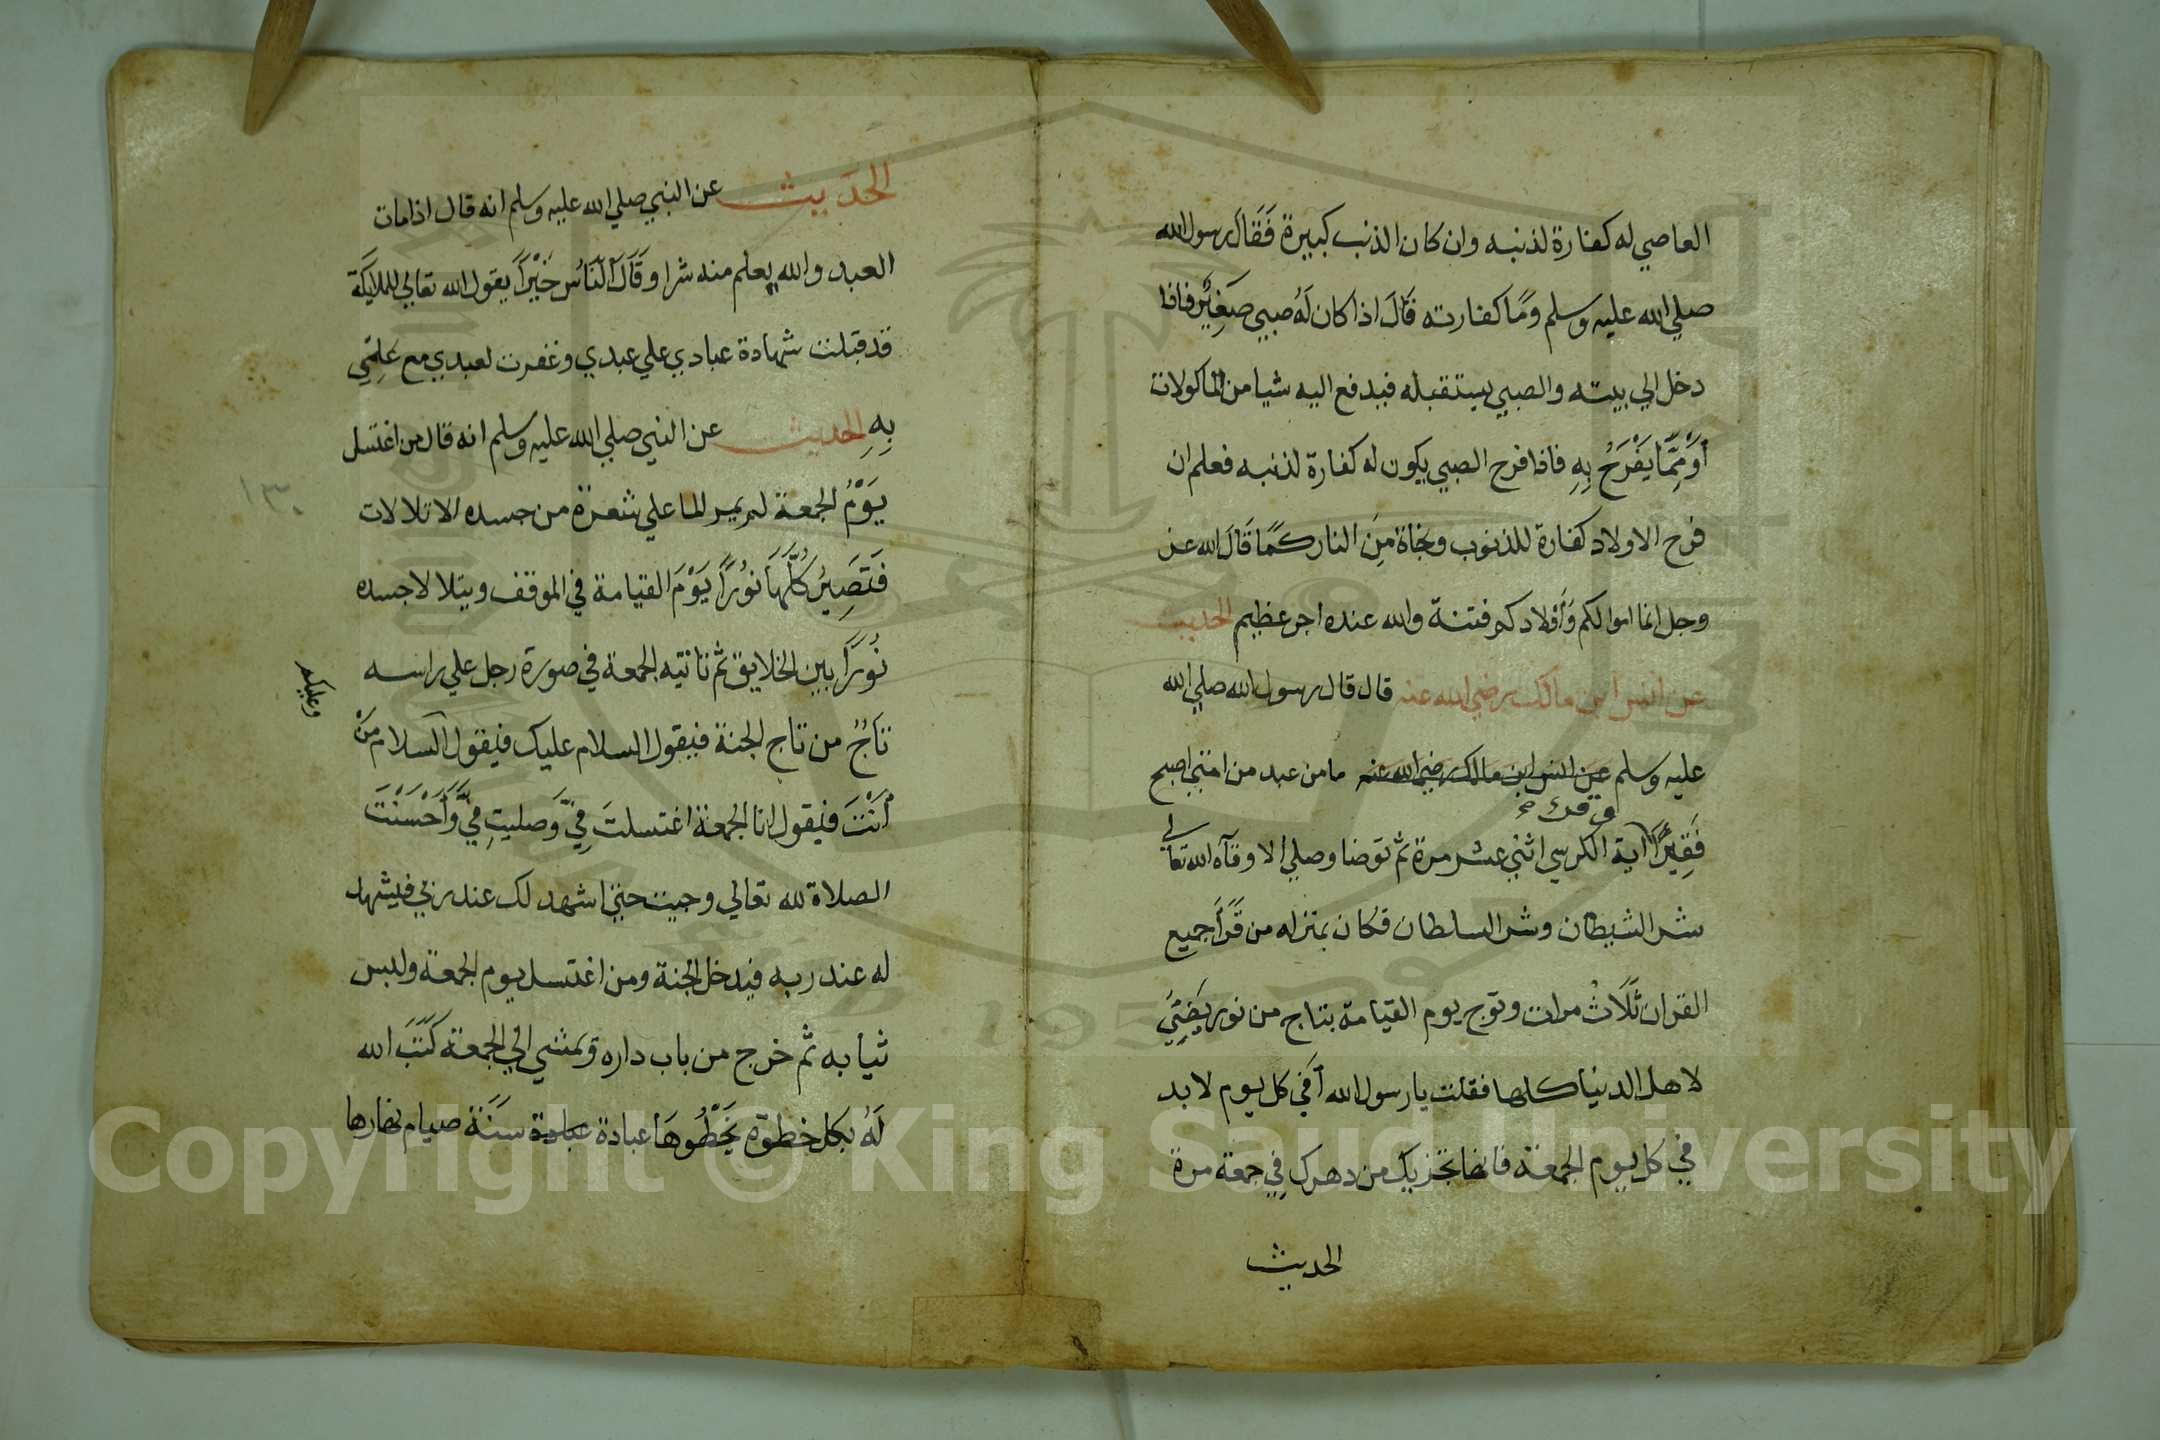 العاصي له كفارة لذنبه وان كان الذنب كبيرة فَقَالَ رسول الله
صلي الله عليه وسلم وَمَا كفارته قَالَ اذا كان لَهُ صبي صَغِيرٌ فاذا
دخل الي بيته والصبي يستقبله فيدفع اليه شيا من الماكولات
أوْمِمَّا يَفْرَحُ بِهِ فاذا فرح الصبي يكون له كفارة لذنبه فعلم ان
فرح الاولاد كفارة للذنوب ونجاة مِنَ النار كَمَا قَالَ الله عز
وجل انما اموالكم وَأَوْلادكم فتنة والله عنده اجر عظيم الحديث
عن انس ابن مالك رضي الله عنه قال قال رسول الله صلي الله
عليه وسلم عن انس ابن مالك رضي الله عنه ما من عبد من امتي اصبح
فَقِيرًا اية الكرسي اثني عشر مرة ثم توضا وصلي الا وقاه الله تعالي
شر الشيطان وشر السلطان فكان بمنزله من قَرَأَ جميع
القران ثَلَاثْ مرات وتوج يوم القيامة بتاج من نور يَضِيُ
لاهل الدنيا كلها فقلت يا رسول الله أفي كل يوم لا بد
في كل يوم الجمعة فانها تجزيك من دهرك فِي جمعة مرة
الحديث
الحَدَيث عن النبي صلي الله عليه وسلم انه قال اذا مات
العبد والله يعلم منه شرا وقَالَ النَّاسُ خَيْرًا يقول الله تعالي للملايكة
قد قبلت شهادة عبادي علي عبدي وغفرت لعبدي مع عِلمِي
بِهِ الحديث عن النبي صلي الله عليه وسلم انه قال من اغتسل
يَوْمُ الجمعة لم يمر الما علي شعرة من جسده الا تلالات
فَتَصِيرُ كُلُّهَا نُورًا يَوْمَ القيامة في الموقف ويتلالا جسده
نُورًا بين الخلايق ثم تاتيه الجمعة في صورة رجل علي راسه
تاجٌ من تاج الجنة فيقول السلام عليك فيقول السلام مَنْ
وعليكم
أنْتَ فيقول انا الجمعة اغتسلتَ فِيَّ وَصليتِ فِيَّ وَأحْسَنْتَ
الصلاة لله تعالي وجيت حتي اشهد لك عند ربي فيشهد
له عند ربه فيدخل الجنة ومن اغتسل يوم الجمعة ولبس
ثيابه ثم خرج من باب داره وتمشي الي الجمعة كَتَبَ الله
لَهُ بكل خطوة يَخْطُوهَا عبادة عبادة سَنَة صيام نهارها
١٣٠
Copyright © King Saud University